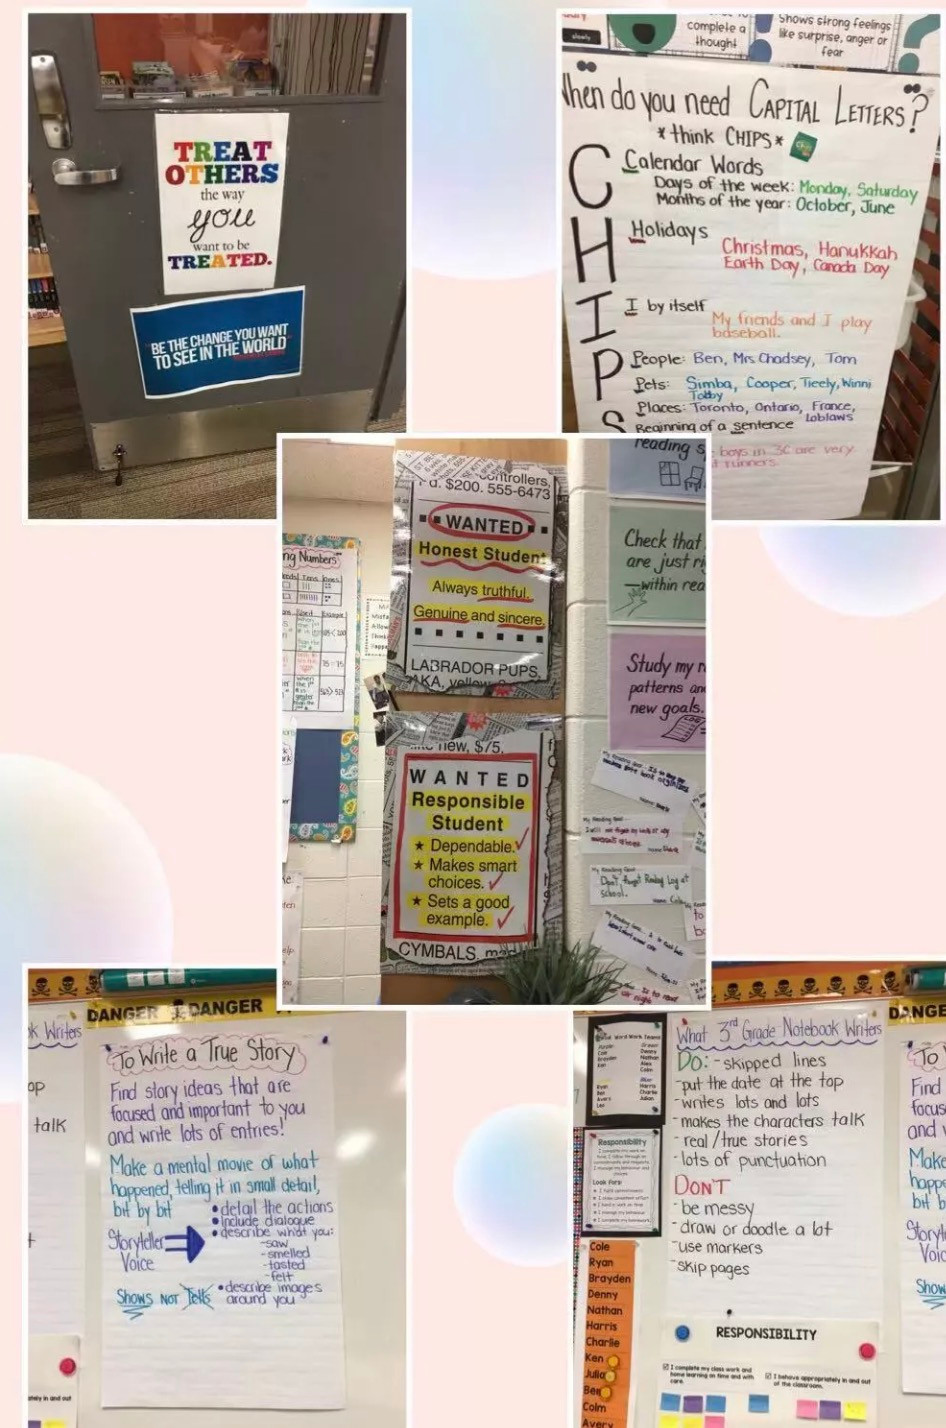 TREAT
OTHERS
the way
you
want to be
TREATED.
"BE THE CHANGE YOU WANT
TO SEE IN THE WORLD"
complete a
thought
shows strong feelings
like surprise, anger or
fear
slowly
When do you need CAPITAL LETTERS?
*think CHIPS*
C
Calendar Words
Days of the week: Monday, Saturday
Months of the year: October, June
H
Holidays
Christmas, Hanukkah
Earth Day, Canada Day
I
I by itself
My friends and I play
baseball.
P
People: Ben, Mrs Chadsey, Tom
Pets: Simba, Cooper, Tieely, Winni
Toby
Places: Toronto, Ontario, France,
Loblaws
S
Beginning of a sentence
boys in 3C are very
runners.
ng Numbers
Tens
Ones
Example
75 = 75
controllers,
$200. 555-6473
WANTED
Honest Student
Always truthful.
Genuine and sincere.
LABRADOR PUPS,
AKA, yellow
new, $75.
WANTED
Responsible
Student
★ Dependable.
★ Makes smart
choices.
★ Sets a good
example.
CYMBALS,
reading s
Check that
are just ri
within rea
Study my r
patterns an
new goals.
My Reading Goal
Don't forget Reading Log at
school.
DANGER DANGER
k Writers
op
talk
To Write a True Story
Find story ideas that are
focused and important to you
and write lots of entries!
Make a mental movie of what
happened, telling it in small detail,
bit by bit
Storyteller
Voice
• detail the actions
• include dialogue
• describe what you:
-saw
-smelled
-tasted
-felt
Shows NOT Tells
• describe images
around you
Word Work Teams
Responsibility
Look fors:
Cole
Ryan
Brayden
Denny
Nathan
Harris
Charlie
Ken
Julia
Ben
Colm
Avery
What 3rd Grade Notebook Writers
DO: -skipped lines
-put the date at the top
-writes lots and lots
-makes the characters talk
-real/true stories
-lots of punctuation
DON'T
-be messy
-draw or doodle a lot
-use markers
-skip pages
RESPONSIBILITY
I complete my class work and
home learning on time and with
care.
I behave appropriately in and out
of the classroom.
DANGE
To
Find
focus
and
Make
happe
bit b
Story
Voic
Show